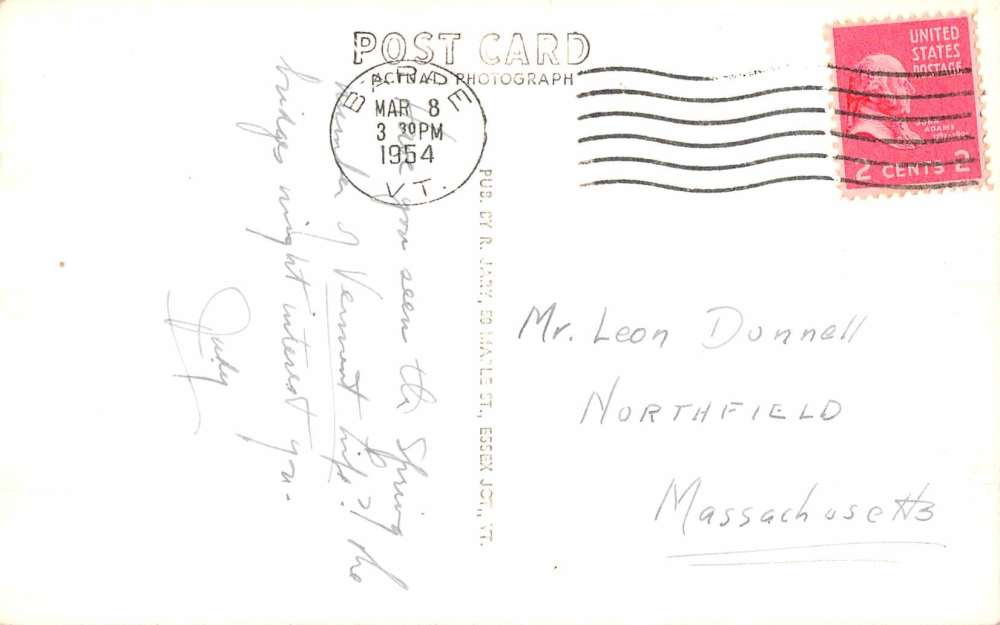 POST CARD
ACTUAL PHOTOGRAPH
BARRE
MAR 8
3 30 PM
1954
VT.
UNITED
STATES
POSTAGE
JOHN
ADAMS
2 CENTS 2
Have you seen the Spring
number of Vermont Life? The
bridges might interest you.
Judy
PUB. BY R. JARY, 50 MAPLE ST., ESSEX JCT., VT.
Mr. Leon Dunnell
NORTHFIELD
Massachusetts